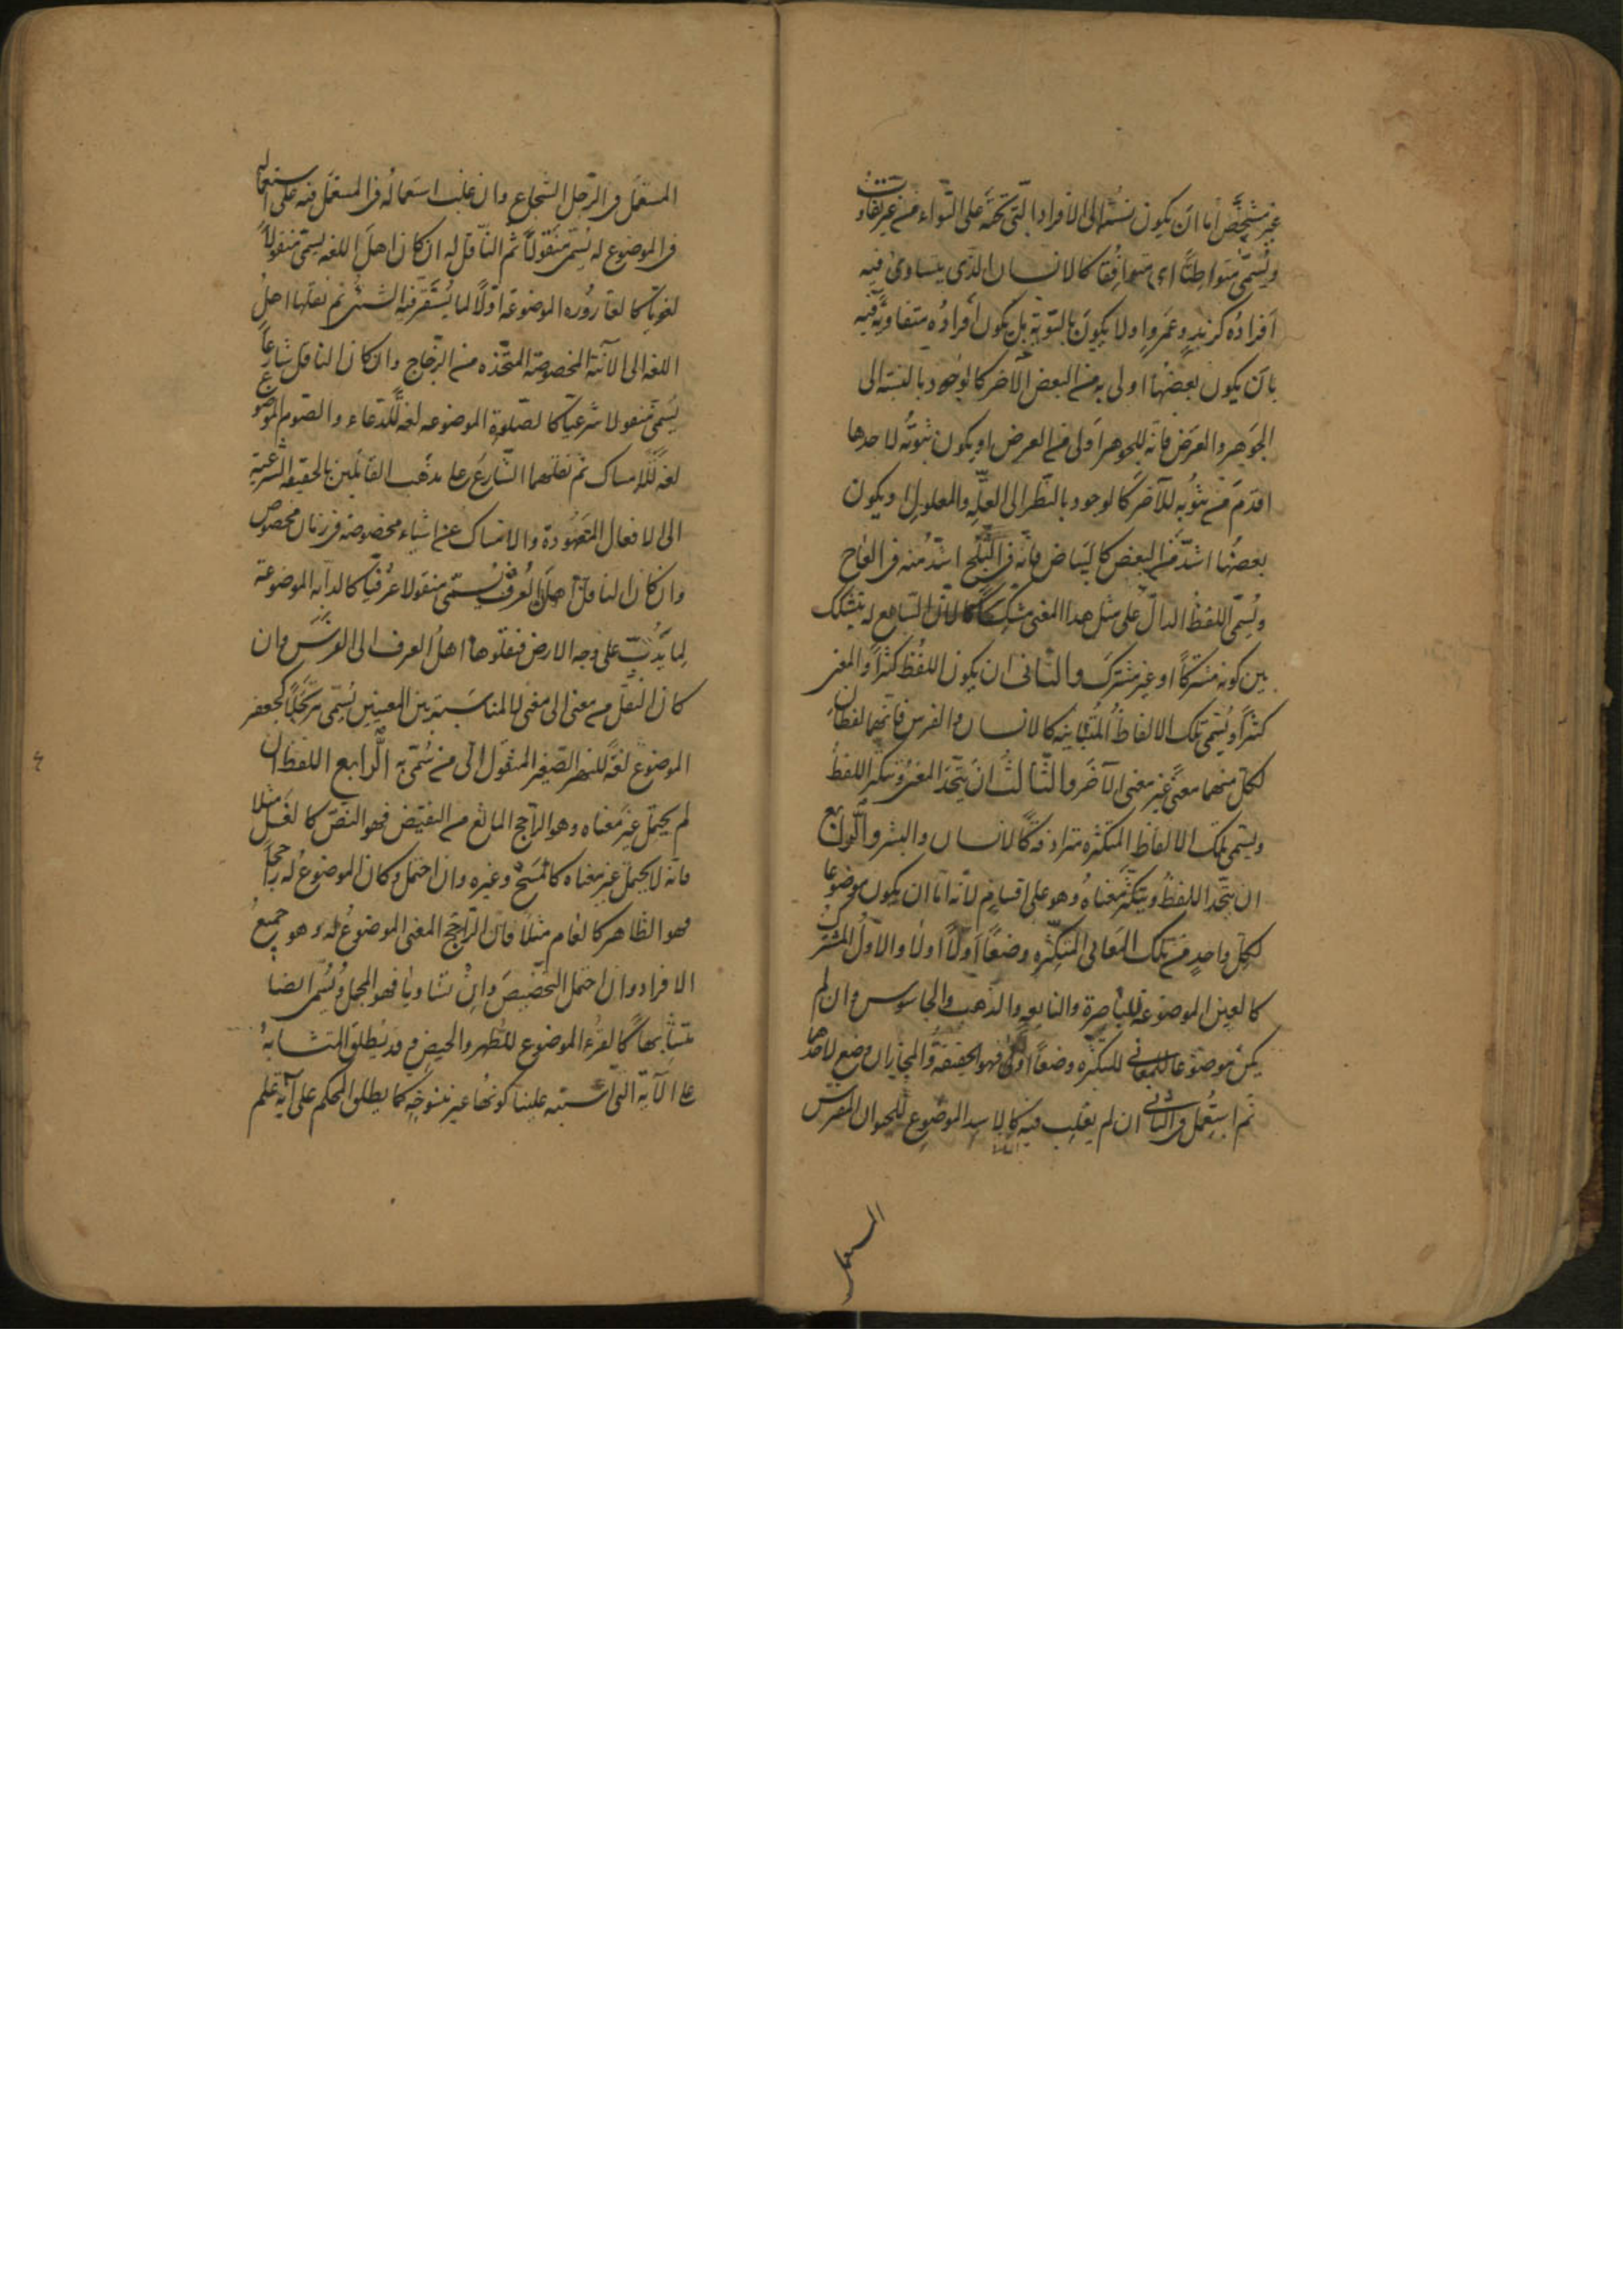 غير مشخّص امّا ان يكون نسبته الى الافراد التى تحته على السّواء من غير تفاوت
ويسمّى متواطئًا اى متوافقًا كالانسان الذى يتساوى فيه
افراده كزيد وعمرو او لا يكون بالسّويّة بل يكون افراده متفاوتة فيه
بان يكون بعضها اولى به من البعض الآخر كالوجود بالنسبة الى
الجوهر والعرض فانّه للجوهر اولى من العرض او يكون ثبوته لاحدها
اقدم من ثبوته للآخر كالوجود بالنّظر الى العلّة والمعلول او يكون
بعضها اشدّ من البعض كالبياض فانّه فى الثّلج اشدّ منه فى العاج
ويسمّى اللفظ الدالّ على مثل هذا المعنى مشكّكًا لانّ السّامع له يتشكّك
بين كونه مشتركًا او غير مشترك والثّانى ان يكون اللفظ كثيرًا والمعنى
كثيرًا ويسمّى تلك الالفاظ المتباينة كالانسان والفرس فانّهما لفظان
لكلّ منهما معنًى غير معنى الآخر والثّالث ان يتّحد المعنى ويتكثّر اللفظ
ويسمّى تلك الالفاظ المتكثّرة مترادفة كالانسان والبشر والرّابع
ان يتّحد اللفظ ويتكثّر معناه وهو على اقسام لانّه امّا ان يكون موضوعا
لكلّ واحد من تلك المعانى المتكثّرة وضعًا اوّلًا اولا والاوّل المشترك
كالعين الموضوعة للباصرة والنابعة والذّهب والجاسوس وان لم
يكن موضوعا للمعانى المتكثّرة وضعًا اوّلًا فهو الحقيقة والمجاز ان وضع لاحدها
ثم استعمل فى الثانى ان لم يغلب فيه كالاسد الموضوع للحيوان المفترس
المستعمل
المستعمل فى الرّجل الشّجاع وان غلب استعماله فى المستعمل فيه على استعماله
فى الموضوع له يسمّى منقولًا ثم النّاقل له ان كان اهل اللغة يسمّى منقولًا
لغويّا كالقارورة الموضوعة اوّلًا لما يستقرّ فيه الشىء ثم نقلها اهل
اللغة الى الآنية المخصوصة المتّخذة من الزّجاج وان كان الناقل شارعًا
يسمّى منقولا شرعيّا كالصّلوة الموضوعة لغة للدّعاء والصّوم الموضوع
لغة للامساك ثم نقلهما الشّارع على مذهب القائلين بالحقيقة الشّرعية
الى الافعال المعهودة والامساك عن اشياء مخصوصة فى زمان مخصوص
وان كان الناقل اهل العرف يسمّى منقولا عرفيّا كالدابة الموضوعة
لما يدبّ على وجه الارض فنقلوها اهل العرف الى الفرس وان
كان النّقل من معنى الى معنى لا لمناسبة بين المعنيين يسمّى مرتجلًا كجعفر
الموضوع لغة للنهر الصّغير المنقول الى من سمّى به الرّابع اللفظ ان
لم يحتمل غير معناه وهو الراجح المانع من النقيض فهو النصّ كالغسل مثلا
فانّه لا يحتمل غير معناه كالمسح وغيره وان احتمل وكان الموضوع له راجحًا
فهو الظاهر كالعام مثلًا فانّ الرّاجح المعنى الموضوع له وهو جميع
الافراد وان احتمل التخصيص وان تساويا فهو المجمل ويسمّى ايضا
متشابها كالقرء الموضوع للطّهر والحيض وقد يطلق المتشابه
على الآية التى اشتبه علينا كونها غير منسوخة كما يطلق المحكم على آية علم